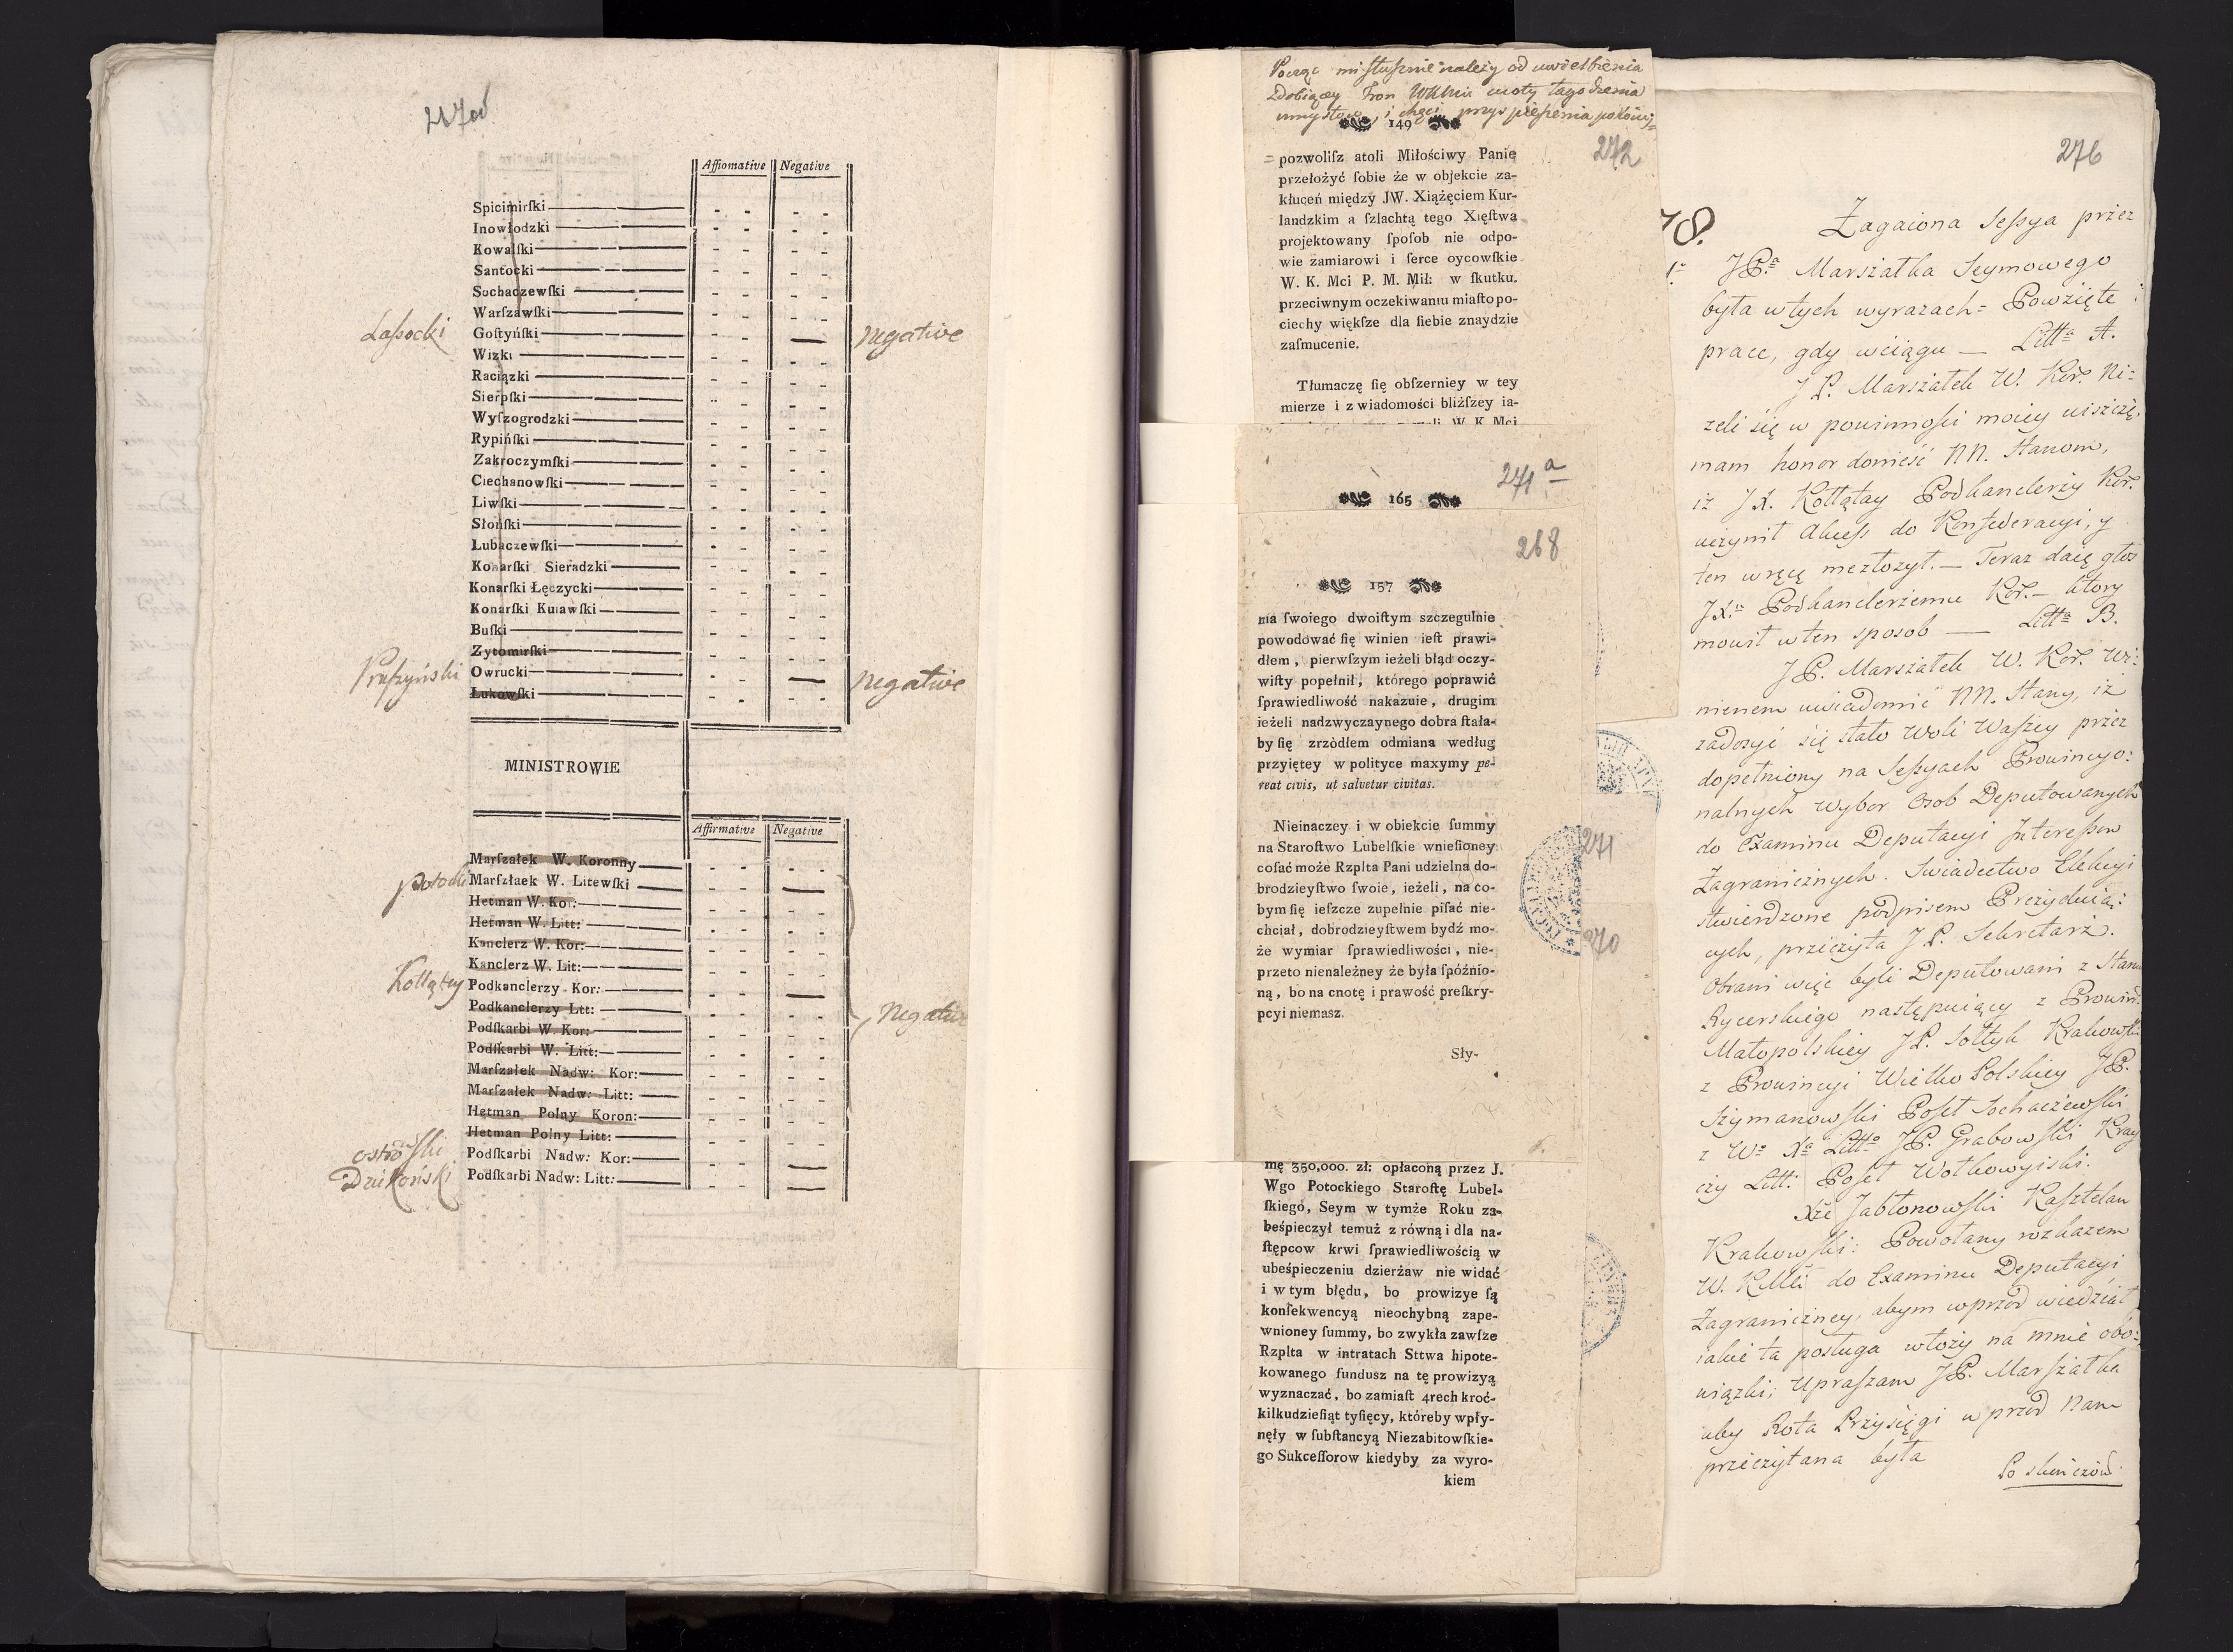 Affiomative Negative
Spicimirſki
Inowłodzki
Kowalſki
Santocki
Sochaczewſki
Warſzawſki
Goſtyńſki
Wizki
Raciązki
Sierpſki
Wyſzogrodzki
Rypińſki
Zakroczymſki
Ciechanowſki
Liwſki
Słońſki
Lubaczewſki
Konarſki Sieradzki
Konarſki Łęczycki
Konarſki Kuiawſki
Buſki
Zytomirſki
Owrucki
Łukowſki
Laſsocki
negative
Pruſzyński
negative
MINISTROWIE
Affirmative Negative
Marſzałek W. Koronny
Marſzłaek W. Litewſki
Hetman W. Kor:
Hetman W. Litt:
Kanclerz W. Kor:
Kanclerz W. Lit:
Podkanclerzy Kor:
Podkanclerzy Ltt:
Podſkarbi W. Kor:
Podſkarbi W. Litt:
Marſzałek Nadw: Kor:
Marſzałek Nadw: Litt:
Hetman Polny Koron:
Hetman Polny Litt:
Podſkarbi Nadw: Kor:
Podſkarbi Nadw: Litt:
Potocki
Kołłątay
negative
ostrowſki
Dziekoński
należy od uwielbienia
zdobiącey Tron WKMci cnoty łagodzenia
umysłow, i chęci przyspieszenia
149
272
pozwoliſz atoli Miłościwy Panie
przełożyć ſobie że w objekcie za-
kłuceń między JW. Xiążęciem Kur-
landzkim a ſzlachtą tego Xięſtwa
projektowany ſpoſob nie odpo-
wie zamiarowi i ſerce oycowſkie
W. K. Mci P. M. Mił: w ſkutku.
przeciwnym oczekiwaniu miaſto po-
ciechy więkſze dla ſiebie znaydzie
zaſmucenie.
Tłumaczę ſię obſzerniey w tey
mierze i z wiadomości bliźſzey ia-
W. K Mci
271a
165
268
157
nia ſwoiego dwoiſtym szczegulnie
powodować ſię winien ieſt prawi-
dłem, pierwſzym ieżeli błąd oczy-
wiſty popełnił, którego poprawić
ſprawiedliwość nakazuie, drugim
ieżeli nadzwyczaynego dobra ſtała-
by ſię zrzòdłem odmiana według
przyiętey w polityce maxymy pe-
reat civis, ut salvetur civitas.
Nieinaczey i w obiekcie ſummy
na Staroſtwo Lubelſkie wnieſioney
coſać może Rzplta Pani udzielna do-
brodzieyſtwo ſwoie, ieżeli, na co-
bym ſię ieſzcze zupełnie piſać nie-
chciał, dobrodzieyſtwem bydź mo-
że wymiar ſprawiedliwości, nie-
przeto nienależney że była ſpóźnio-
ną, bo na cnotę i prawość preſkry-
pcyi niemasz.
Sły-
271
270
mę 350,000. zł: opłaconą przez J.
Wgo Potockiego Staroſtę Lubel-
ſkiego, Seym w tymże Roku za-
beśpieczył temuż z równą i dla na-
ſtępcow krwi ſprawiedliwością w
ubeśpieczeniu dzierżaw nie widać
i w tym błędu, bo prowizye ſą
konſekwencyą nieochybną zape-
wnioney ſummy, bo zwykła zawſze
Rzplta w intratach Sttwa hipote-
kowanego fundusz na tę prowizyą
wyznaczać, bo zamiaſt 4rech kroć-
kilkudzieſiąt tyſięcy, któreby wpły-
nęły w ſubſtancyą Niezabitowſkie-
go Sukceſſorow kiedyby za wyro-
kiem
276
Zagaiona Seſsya przez
JPa Marszałka Seymowego
była w tych wyrazach= Powzięte
prace, gdy wciągu — Litta A.
JP. Marszałek W. Kor. Ni=
zeli się w powinności moiey uiszczę,
mam honor donieść NN. Stanom,
iż JX. Kołłątay Podkanclerzy Kor.
uczynił akceſs do Konfederacyi, y
ten w ręcę me złożył. — Teraz daię głos
JXu Podkanclerzemu Kor. — ktory
mowił w ten sposob — Litta B.
JP. Marszałek W. Kor. Wi=
nienem uwiadomić NN. Stany, iż
zadosyć się stało Woli Waſzey przez
dopełniony na Seſsyach Prowincyo=
nalnych wybor Osob Deputowanych
do Examinu Deputacyi Intereſsow
Zagranicznych. Swiadectwo Elekcyi
stwierdzone podpisem Prezyduią=
cych, przeczytał JP. Sekretarz.
Obrani więc byli Deputowani z Stanu
Rycerskiego następuiący z Prowin:
Małopolskiey JP. Sołtyk Krakowſ:
z Prowincyi Wielko Polskiey JP.
Szymanowſki Poſeł Sochaczewſki
z Wo Xa Litto JP. Grabowſki Kray
czy Litt: Poſeł Wołkowyiski.
Xże Jabłonowſki Kaſztelan
Krakowſki: Powołany rozkazem
W. KMci do Examinu Deputacyi
Zagraniczney, abym wprzod wiedział
iakie ta posługa włoży na mnie obo=
wiązki, upraſzam JP. Marſzałka
aby Rota Przysięgi w przod Nam
przeczytana była